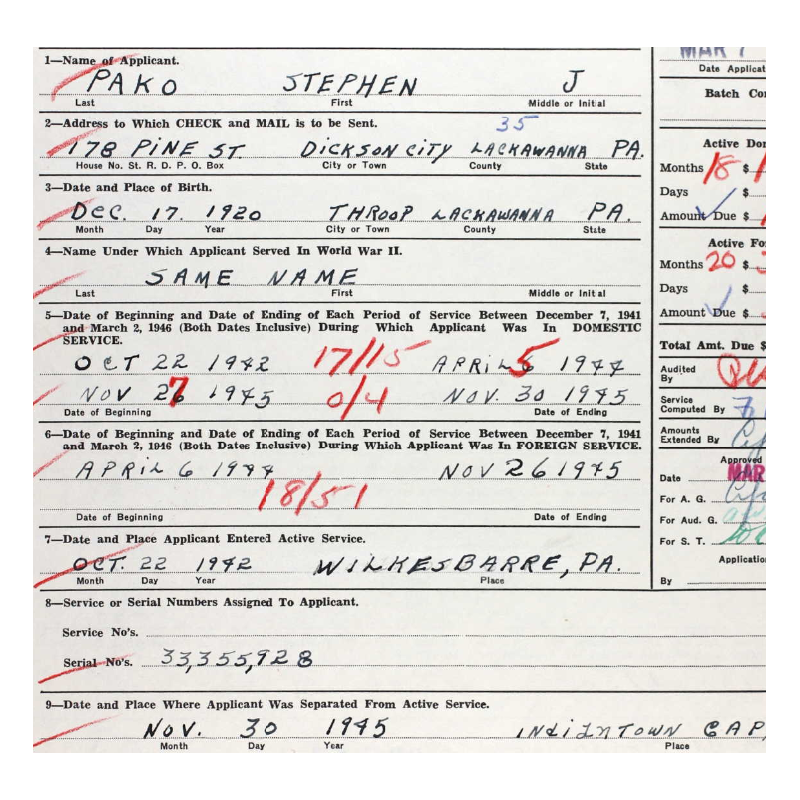 1—Name of Applicant.
PAKO STEPHEN J
Last First Middle or Initial
2—Address to Which CHECK and MAIL is to be Sent.
35
178 PINE ST. DICKSON CITY LACKAWANNA PA.
House No. St. R. D. P. O. Box City or Town County State
3—Date and Place of Birth.
DEC. 17. 1920 THROOP LACKAWANNA PA.
Month Day Year City or Town County State
4—Name Under Which Applicant Served In World War II.
SAME NAME
Last First Middle or Initial
5—Date of Beginning and Date of Ending of Each Period of Service Between December 7, 1941
and March 2, 1946 (Both Dates Inclusive) During Which Applicant Was In DOMESTIC
SERVICE.
OCT 22 1942 17/15 APRIL 5 1944
NOV 27 1945 0/4 NOV. 30 1945
Date of Beginning Date of Ending
6—Date of Beginning and Date of Ending of Each Period of Service Between December 7, 1941
and March 2, 1946 (Both Dates Inclusive) During Which Applicant Was In FOREIGN SERVICE.
APRIL 6 1944 NOV 26 1945
18/51
Date of Beginning Date of Ending
7—Date and Place Applicant Entered Active Service.
OCT. 22 1942 WILKESBARRE, PA.
Month Day Year Place
8—Service or Serial Numbers Assigned To Applicant.
Service No's.
Serial No's. 33,355,928
9—Date and Place Where Applicant Was Separated From Active Service.
NOV. 30 1945 INDIINTOWN GAP,
Month Day Year Place
MAR 7
Date Applicat
Batch Con
Active Dom
Months 18 $
Days $
Amount Due $
Active For
Months 20 $
Days $
Amount Due $
Total Amt. Due $
Audited
By
Service
Computed By
Amounts
Extended By
Approved
Date MAR
For A. G.
For Aud. G.
For S. T.
Application
By